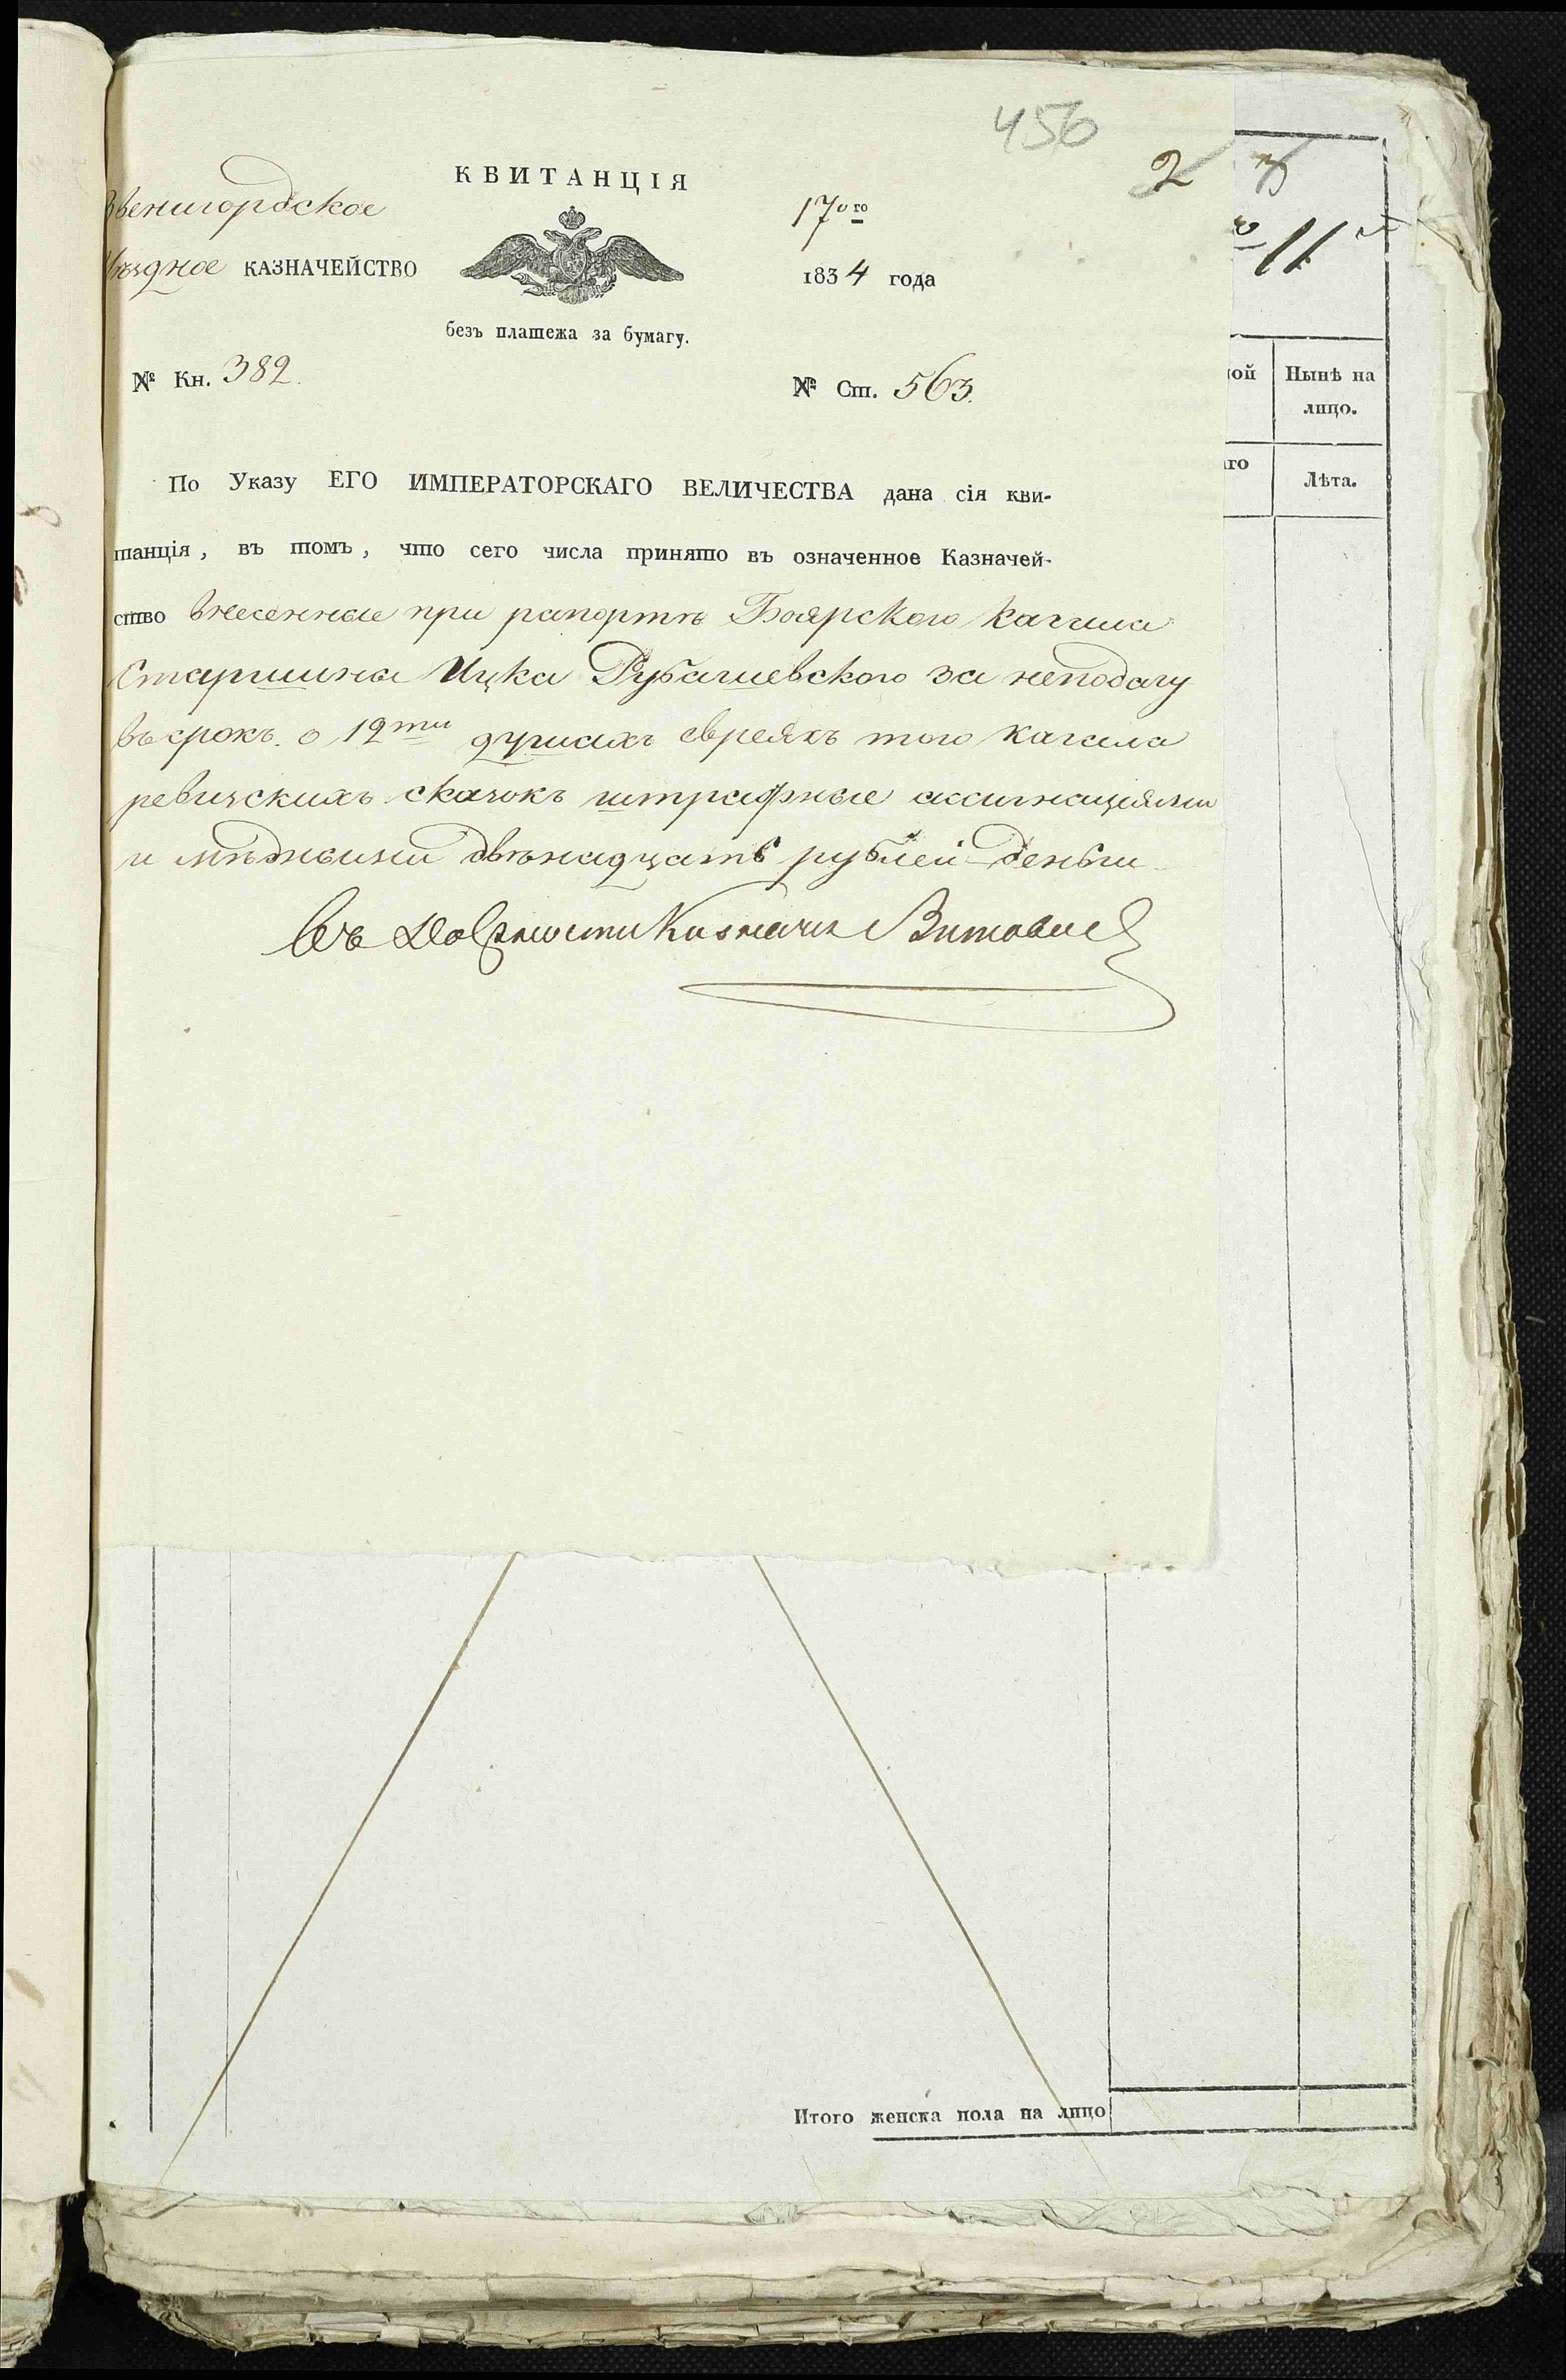 456
КВИТАНЦІЯ
2
Звенигородское
17ого
11
Уѣздное КАЗНАЧЕЙСТВО
1834 года
безъ платежа за бумагу.
№ Кн. 382.
№ Ст. 563.
ой
Нынѣ на
лицо.
По Указу ЕГО ИМПЕРАТОРСКАГО ВЕЛИЧЕСТВА дана сія кви-
го
Лѣта.
танція, въ томъ, что сего числа принято въ означенное Казначей-
ство внесенные при рапортѣ Боярского кагала
Старшина Ицка Рубашевского за неподачу
въ срокъ о 12ти душахъ евреяхъ того кагала
ревизскихъ сказокъ штрафные ассигнаціями
и мѣдными двѣнадцать рублей деньги
Въ Должности Казначея
Итого женска пола на лицо